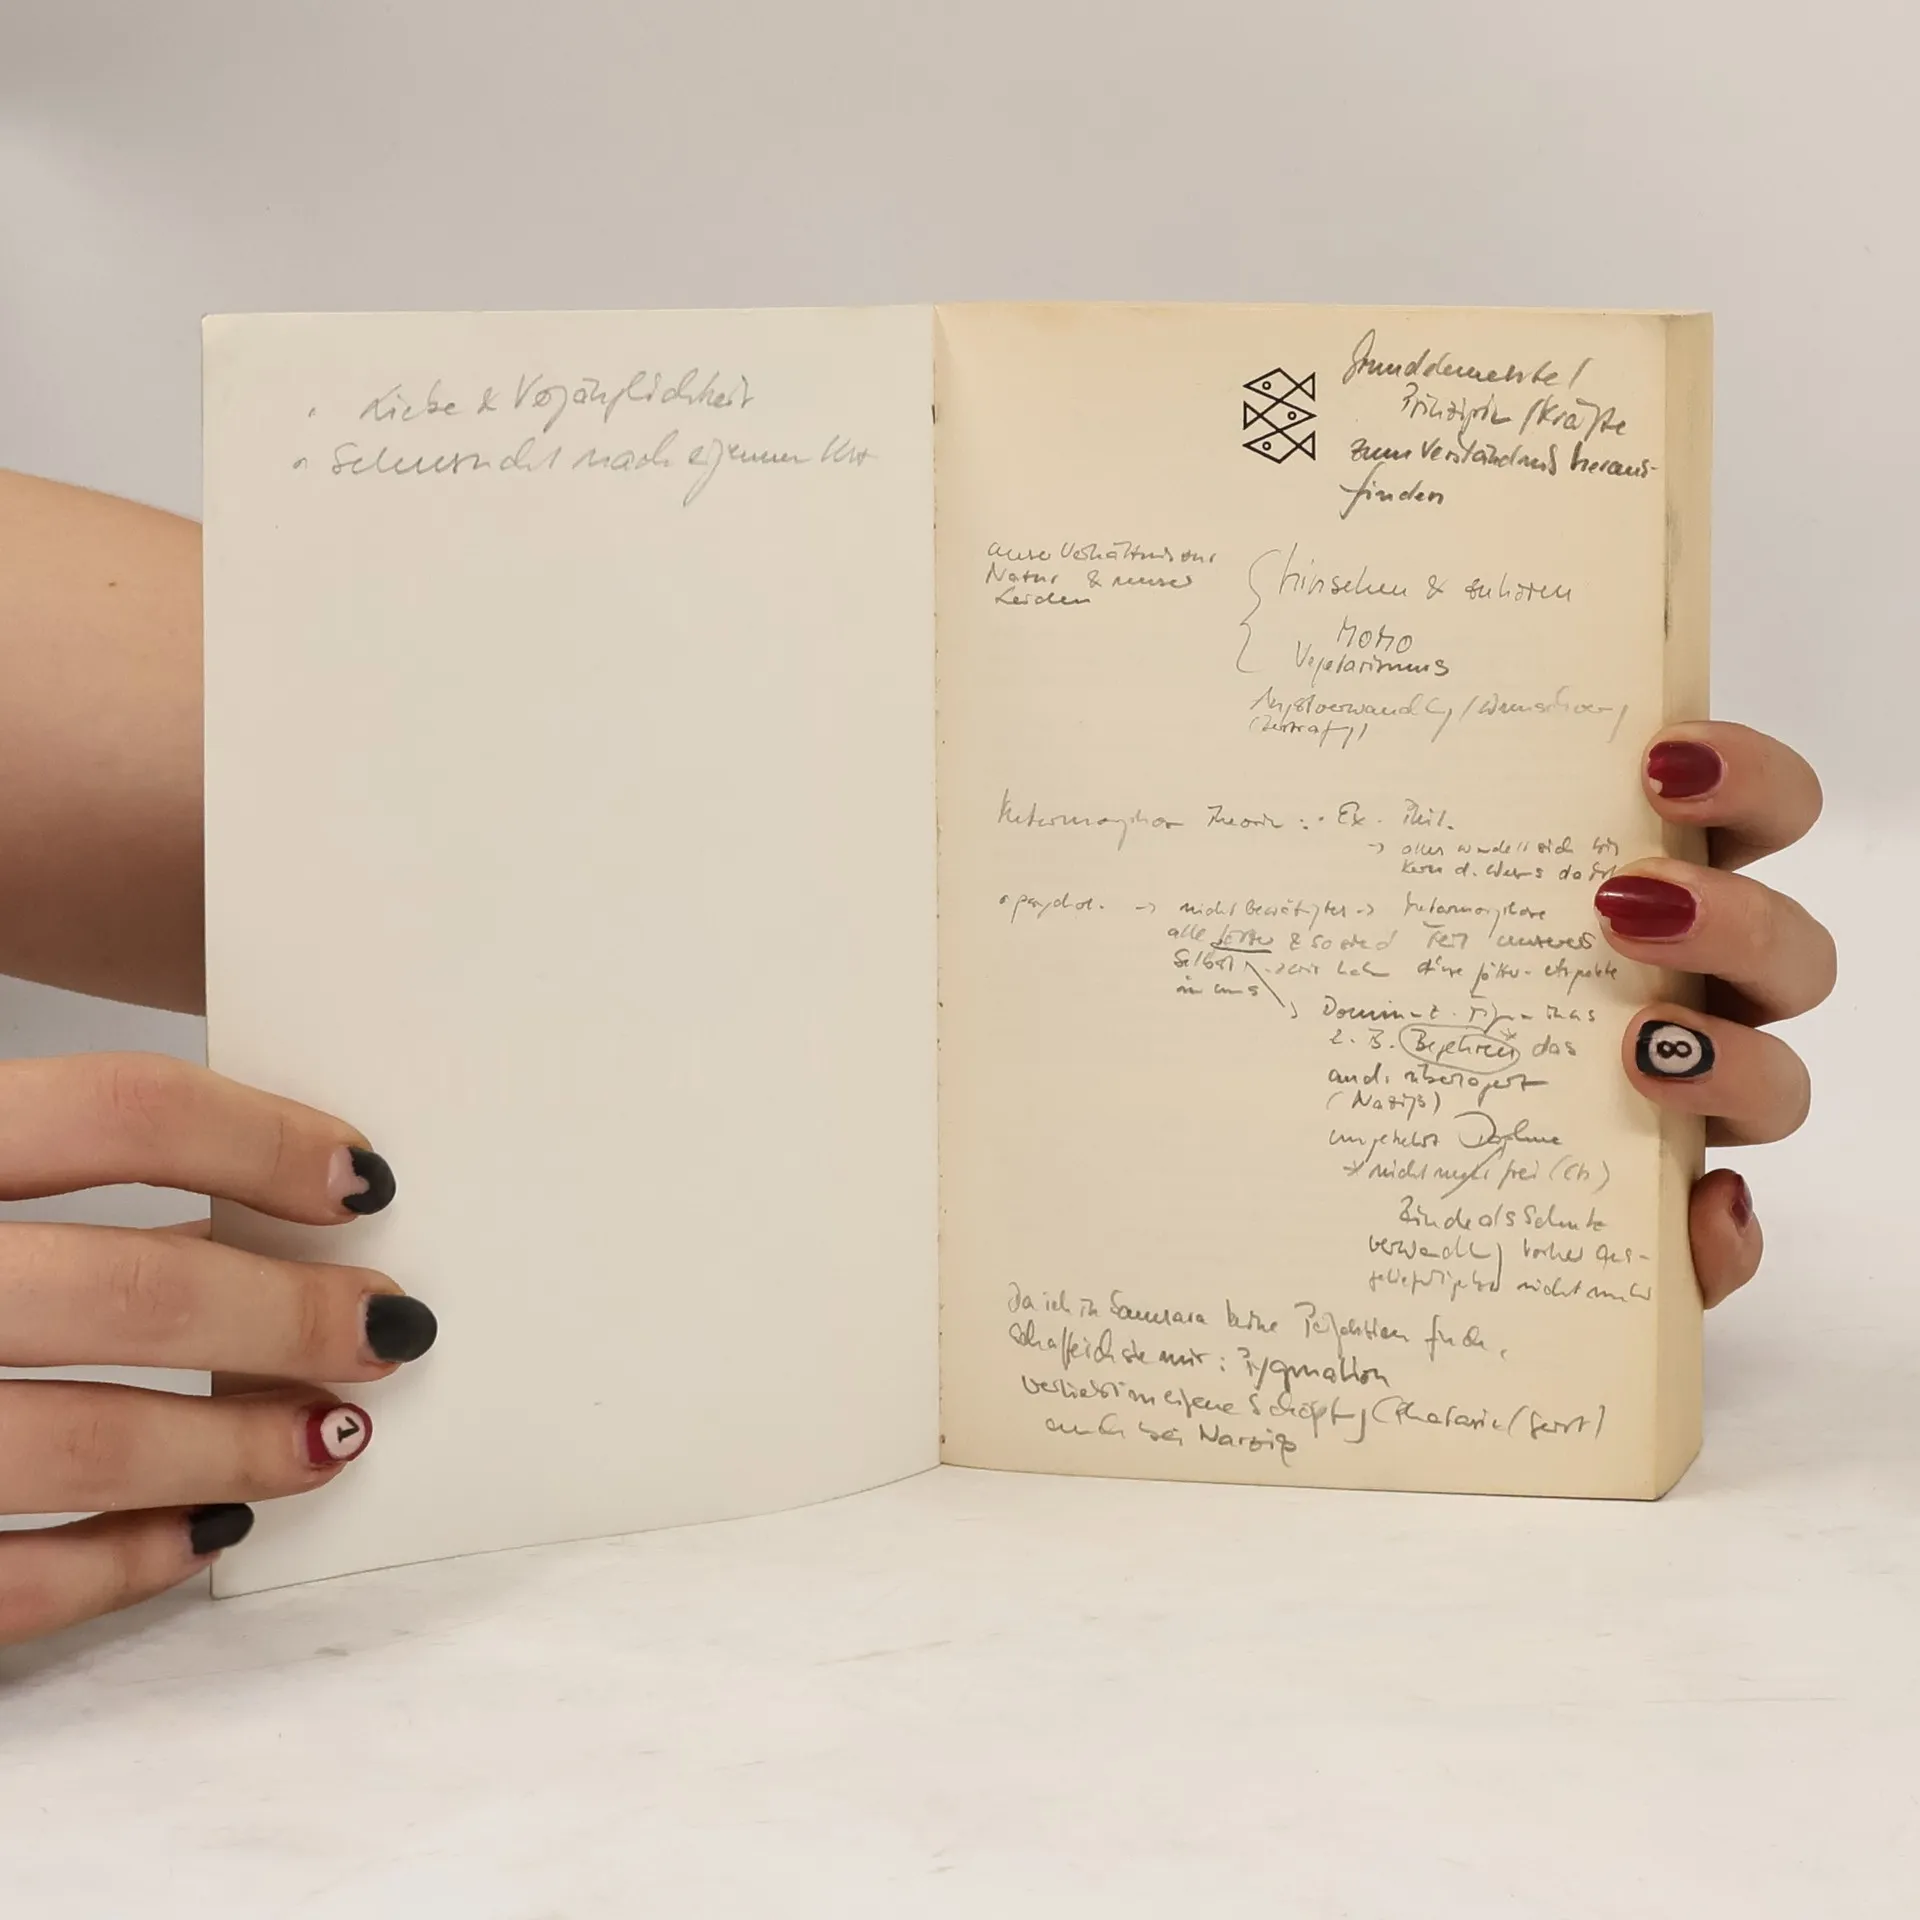 • Liebe & Vergänglichkeit
• Sehnsucht nach eigenem
Grundelemente /
Prinzipien / Kräfte
zum Verständnis heraus-
finden
unser Verhältnis zur
Natur & unser
Leiden
hinsehen & zuhören
MOMO
Vegetarismus
Angstverwandlg /
Metamorphose Theorie : • Ex. Phil.
→ alles wandelt sich
Kern d.
• psychol. → nicht bewältigtes → Metamorphose
alle Götter & so sind Teil unseres
Selbst wir haben diese Götter-Aspekte
in uns
z. B. Begehren* das
and. überlagert
(Narziß)
umgekehrt Daphne
* nicht mehr frei
Rinde als Schutz
verwandlg vorher
nicht mehr
Da ich in Samsara keine Perfektion finde,
schaffe ich sie mir : Pygmalion
verliebt in eigene Schöpfg (Phantasie (Geist)
auch bei Narziß
8
1